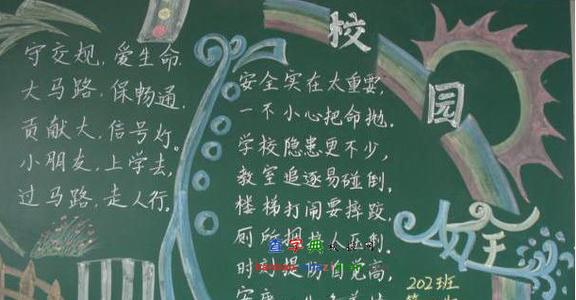 守交规，爱生命.
大马路，保畅通.
贡献大，信号灯.
小朋友，上学去，
过马路，走人行.
校园
安全
安全实在太重要，
一不小心把命抛.
学校隐患更不少，
教室追逐易碰倒.
楼梯打闹要摔跤，
厕所拥挤人
时刻提 自觉高，
202班
查字典